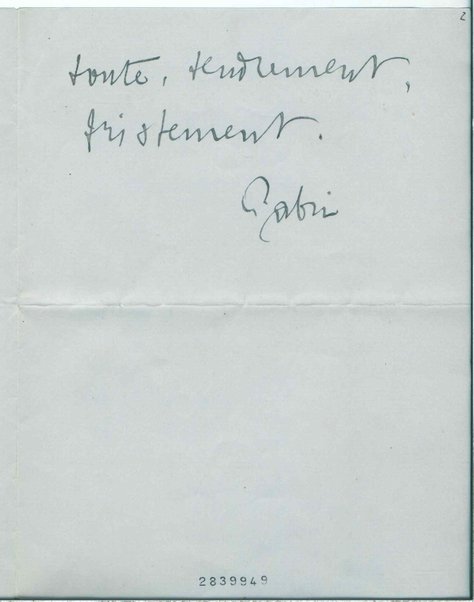 2
toute, tendrement,
tristement.
Gabin
2839949